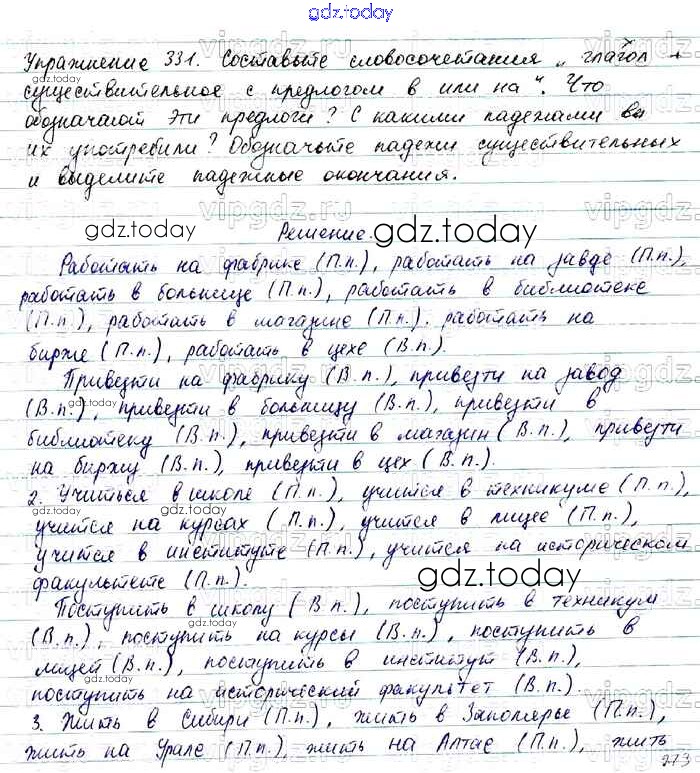 gdz.today
Упражнение 331. Составьте словосочетания „ глагол +
существительное с предлогом в или на“. Что
обозначают эти предлоги? С какими падежами вы
их употребили? Обозначьте падежи существительных
и выделите падежные окончания.
Решение.
Работать на фабрике (П.п.), работать на завде (П.п.),
работать в больнице (П.п.), работать в библиотеке
(П.п.), работать в магазине (П.п.). работать на
бирже (П.п.), работать в цехе (В.п.).
Привезти на фабрику (В.п.), привезти на завод
(В.п.), привезти в больницу (В.п.), привезти в
библиотеку (В.п.), привезти в магазин (В.п.), привезти
на биржу (В.п.), привезти в цех (В.п.).
2. Учиться в школе (П.п.), учится в техникуме (П.п.),
учится на курсах (П.п.), учится в лицее (П.п.),
учится в институте (П.п.), учится на историческом
факультете (П.п.).
Поступить в школу (В.п.), поступить в техникум
(В.п.), поступить на курсы (В.п.), поступить в
лицей (В.п.), поступить в институт (В.п.),
поступить на исторический факультет (В.п.).
3. Жить в Сибири (П.п.), жить в Заполярье (П.п.),
жить на Урале (П.п.), жить на Алтае (П.п.), жить
273